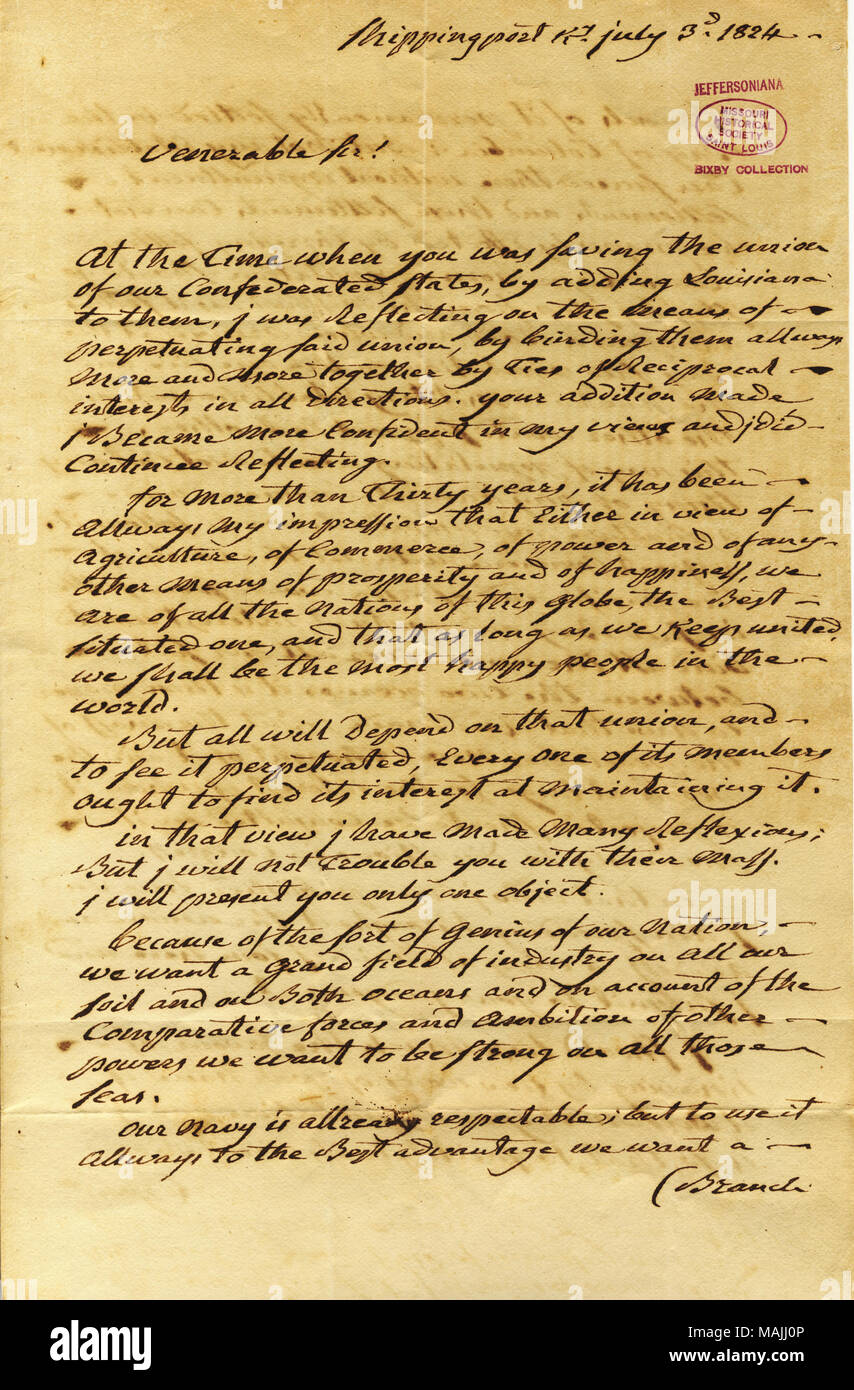 Shippingport Ky. july 3d. 1824
JEFFERSONIANA
MISSOURI
HISTORICAL
SOCIETY
SAINT LOUIS
BIXBY COLLECTION
Venerable Sir!
At the Time when you was saving the union
of our Confederated States, by adding Louisiana
to them, j was Reflecting on the Means of
perpetuating said union, by binding them allways
More and More together by Ties of Reciprocal
interests in all Directions. your addition Made
j Became More Confident in my views and j did
Continue Reflecting.
for More than Thirty years, it has been
Allways My impression that Either in view of
Agriculture, of Commerce, of power and of any
other Means of prosperity and of happiness, we
Are of all the Nations of this Globe, the Best
situated one, and that as long as we Keep united,
we shall be the Most happy people in the
world.
But all will Depend on that union, and
to see it perpetuated, Every one of its Members
ought to find its interest at Maintaining it.
in that view j have Made Many Reflexions;
But j will Not Trouble you with their Mass.
j will present you only one object.
because of the sort of Genius of our Nation,
we want a Grand field of industry on All our
soil and on Both Oceans and on account of the
Comparative forces and Ambition of other
powers we want to be strong on All those
seas.
our Navy is allready respectable; but to use it
Allways to the Best advantage we want a
(Branch
alamy
alamy
Image ID: MAJJ0P
www.alamy.com